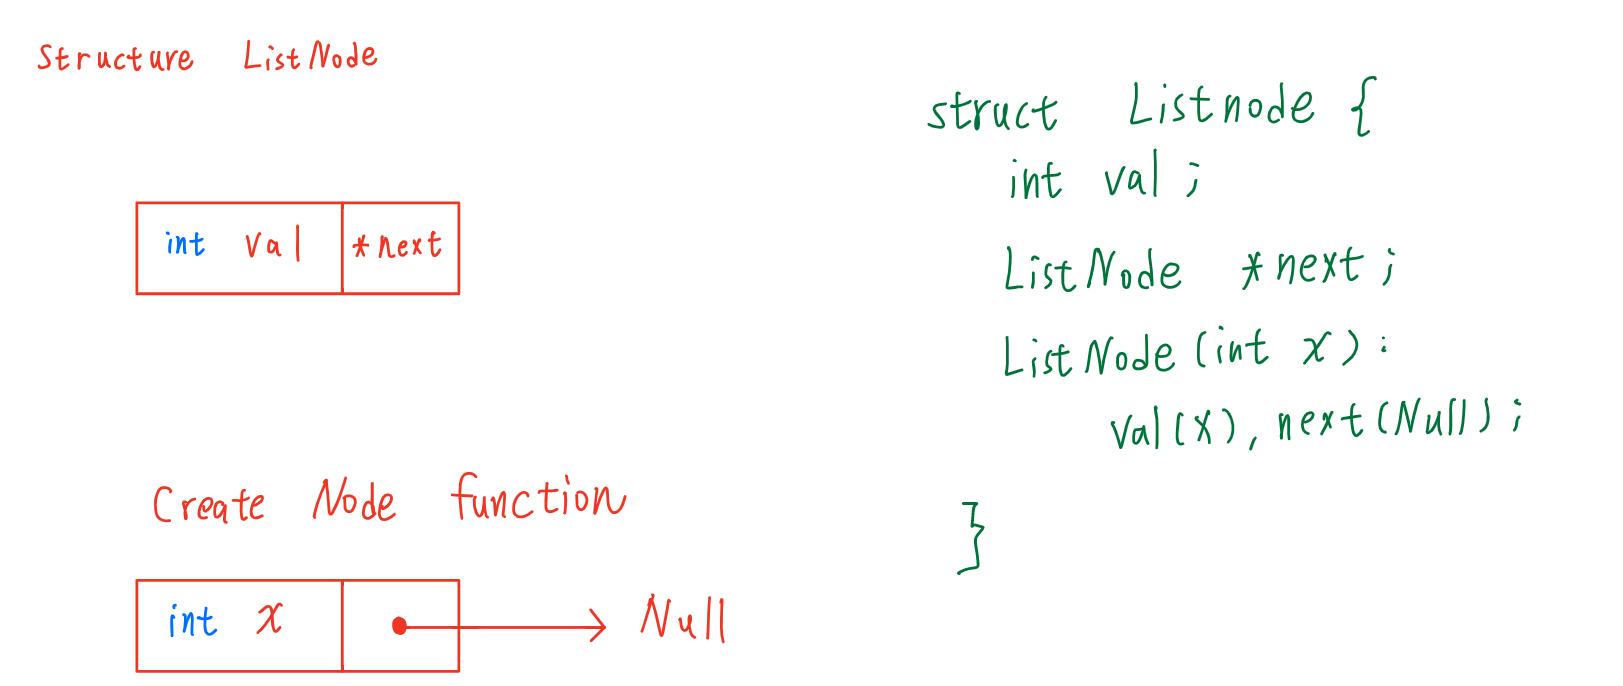 Structure ListNode
int val *next
Create Node function
int x Null
struct Listnode {
int val ;
ListNode *next ;
ListNode (int x) :
val(x), next(Null) ;
}